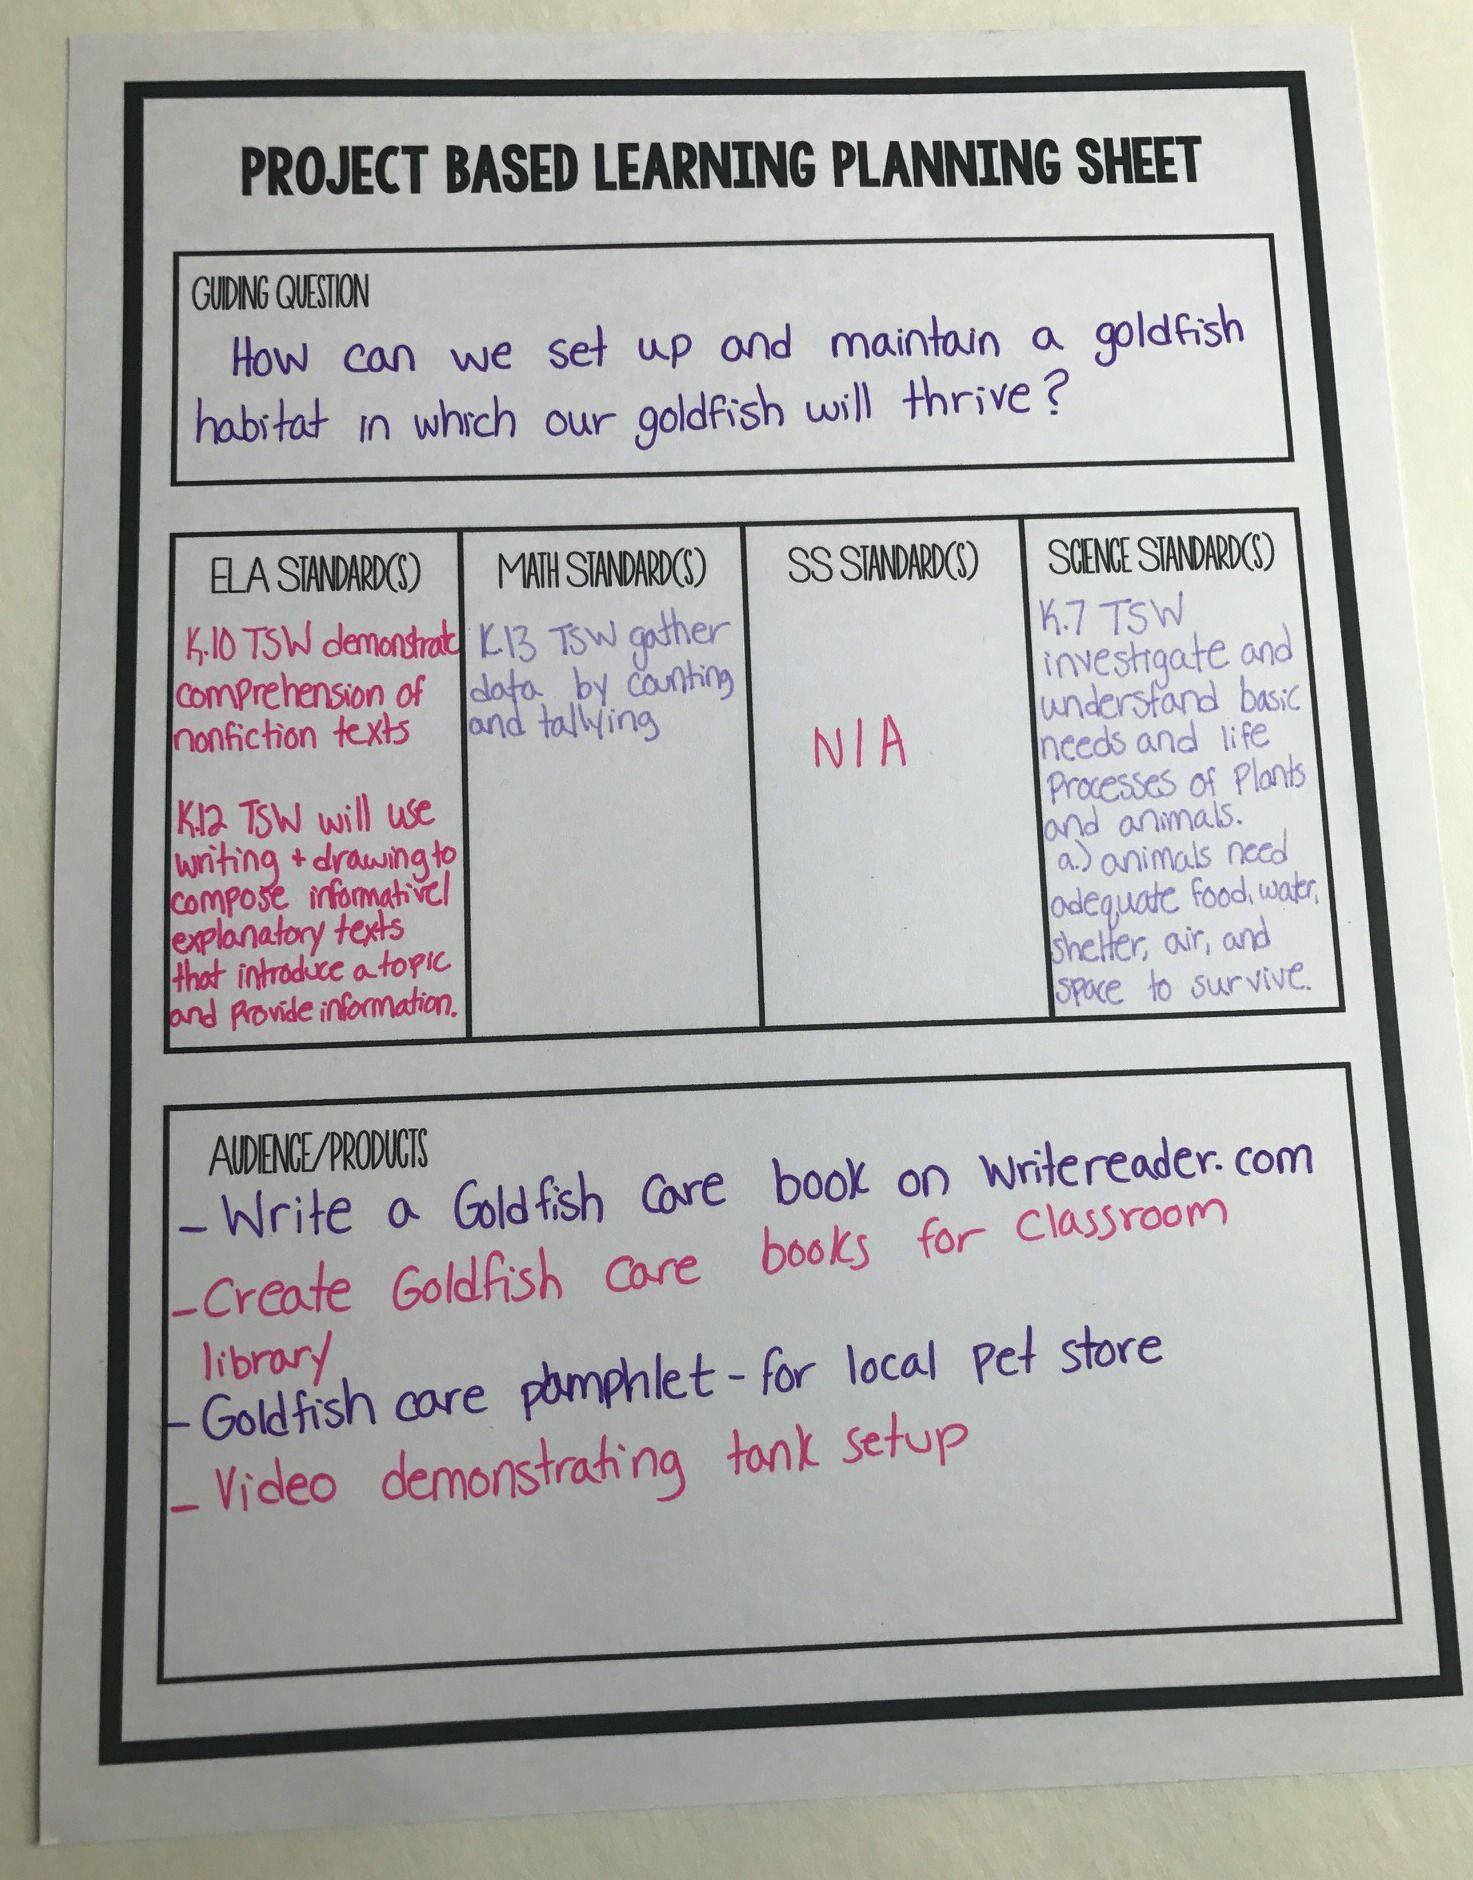 PROJECT BASED LEARNING PLANNING SHEET
GUIDING QUESTION
How can we set up and maintain a goldfish
habitat in which our goldfish will thrive?
ELA STANDARD(S)
K.10 TSW demonstrate
comprehension of
nonfiction texts
K.12 TSW will use
writing + drawing to
compose informative/
explanatory texts
that introduce a topic
and provide information.
MATH STANDARD(S)
K.13 TSW gather
data by counting
and tallying
SS STANDARD(S)
N/A
SCIENCE STANDARD(S)
K.7 TSW
investigate and
understand basic
needs and life
Processes of Plants
and animals.
a.) animals need
adequate food, water,
shelter, air, and
space to survive.
AUDIENCE/PRODUCTS
- Write a Goldfish Care book on writereader.com
- Create Goldfish care books for classroom
library
- Goldfish care pamphlet - for local pet store
- Video demonstrating tank setup